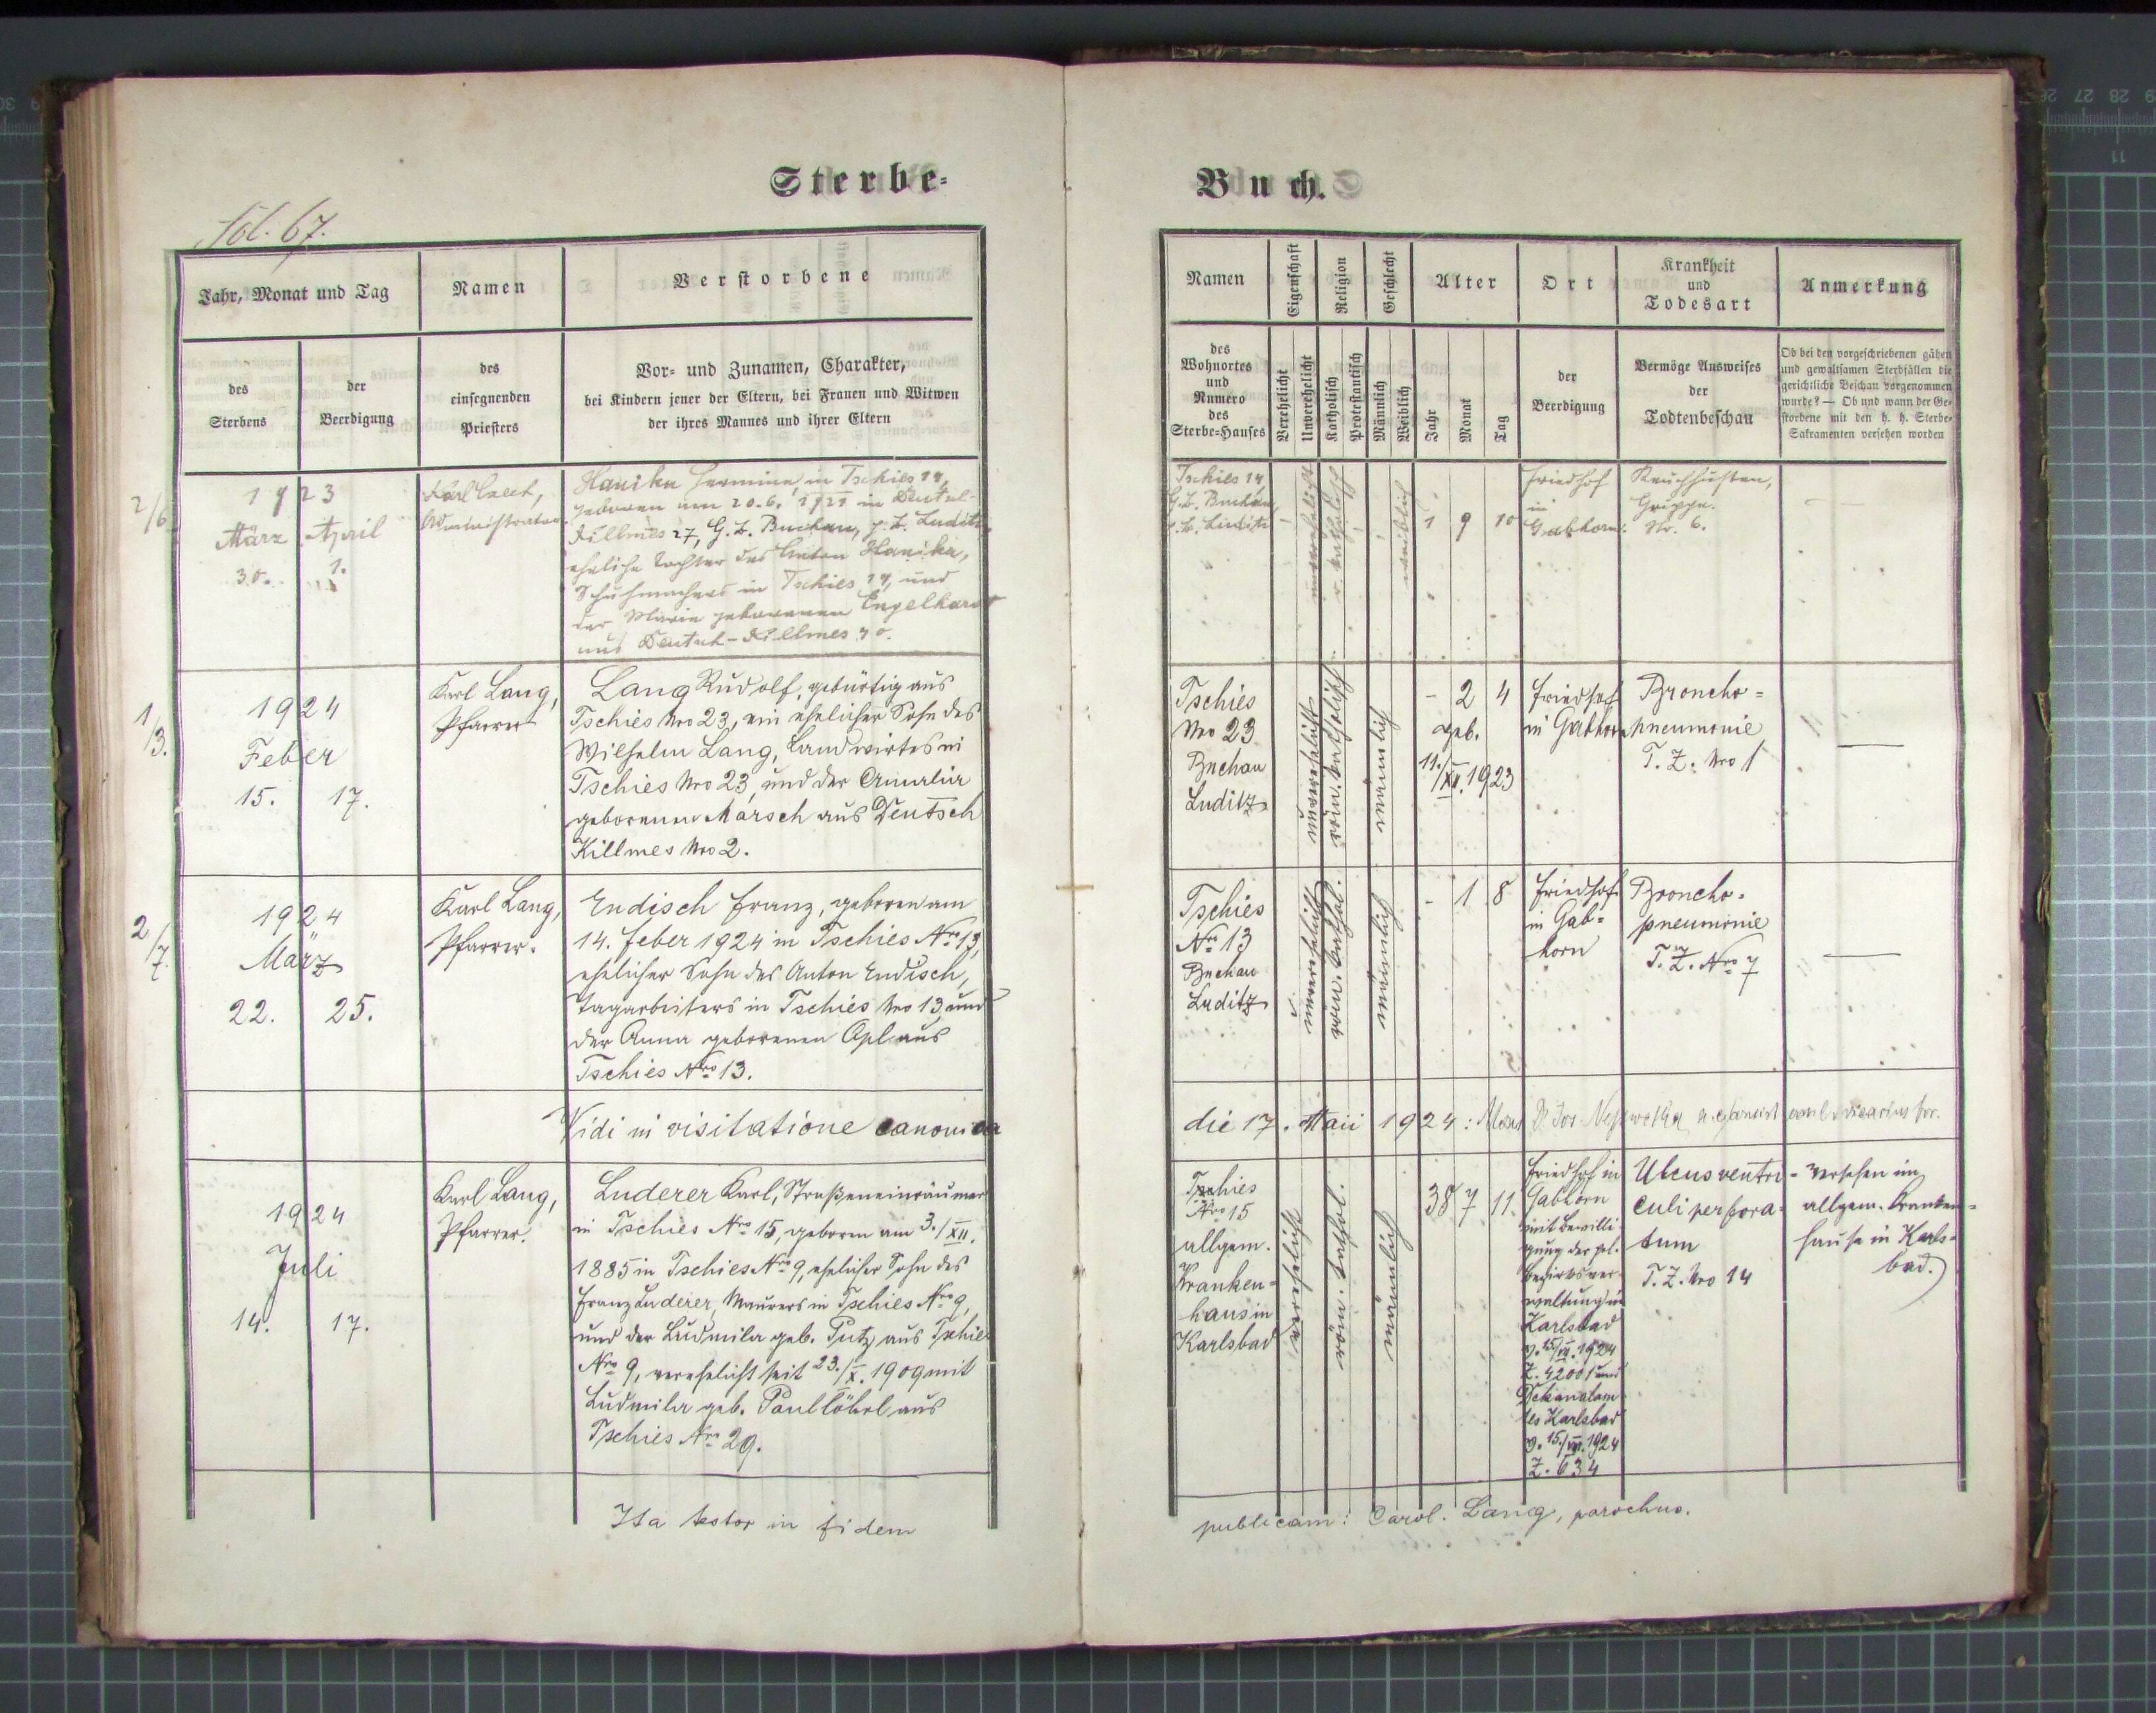 Sterbe-
Buch.
fol. 67.
Jahr, Monat und Tag
Namen
Verstorbene
des
Sterbens
der
Beerdigung
des
einsegnenden
Priesters
Vor- und Zunamen, Charakter,
bei Kindern jener der Eltern, bei Frauen und Witwen
der ihres Mannes und ihrer Eltern
Namen
Eigenschaft
Religion
Geschlecht
Alter
Ort
Krankheit
und
Todesart
Anmerkung
des
Wohnortes
und
Numero
des
Sterbe-Hauses
Verehelicht
Unverehelicht
Katholisch
Protestantisch
Männlich
Weiblich
Jahr
Monat
Tag
der
Beerdigung
Vermöge Ausweises
der
Todtenbeschau
Ob bei den vorgeschriebenen gähen
und gewaltsamen Sterbfällen die
gerichtliche Beschau vorgenommen
wurde? — Ob und wann der Ge-
storbene mit den h. h. Sterbe-
Sakramenten versehen worden
2/6
1923
März April
30. 1.
Karl
Administrator
Hanika Hermine, in Tschies 14,
geboren am 20. 6. 1921 in Deutsch-
Killmes 27, G. B. Buchau, p. B. Luditz,
eheliche Tochter des Anton Hanika,
Schuhmachers in Tschies 14, und
der Marie geborenen Engelhardt
aus Deutsch-Killmes 40.
Tschies 14
G. B. Buchau
p. B. Luditz
unverehelicht
r. katholisch
weiblich
1 9 10
Friedhof
in
Gabhorn.
Keuchhusten,
Grippe.
Nr. 6.
1/3.
1924
Feber
15. 17.
Karl Lang,
Pfarrer
Lang Rudolf, gebürtig aus
Tschies Nro 23, ein ehelicher Sohn des
Wilhelm Lang, Landwirtes in
Tschies Nro 23, und der Amalia
geborenen Marsch aus Deutsch
Killmes Nro 2.
Tschies
Nro 23
Buchau
Luditz
unverehelicht
röm. katholisch
männlich
- 2 4
geb.
11./XII. 1923
Friedhof
in Gabhorn
Broncho=
pneumonie
T. Z. Nro 1
2/7.
1924
März
22. 25.
Karl Lang,
Pfarrer.
Endisch Franz, geboren am
14. Feber 1924 in Tschies Nro 13,
ehelicher Sohn des Anton Endisch,
Tagarbeiters in Tschies Nro 13, und
der Anna geborenen Apl aus
Tschies Nro 13.
Tschies
Nro 13
Buchau
Luditz
unverehelicht
röm. kathol.
männlich
- 1 8
Friedhof
in Gab=
horn
Broncho-
pneumonie
T. Z. Nro 7
Vidi in visitatione canonica
die 17. Maii 1924: Dr. Jos. vicarius for.
1924
Juli
14. 17.
Karl Lang,
Pfarrer.
Luderer Karl, Straßeneinräumer
in Tschies Nro 15, geboren am 3./XII.
1885 in Tschies Nro 9, ehelicher Sohn des
Franz Luderer, Maurers in Tschies Nro 9,
und der Ludmila geb. Putz aus Tschies
Nro 9, verehelicht seit 23./X. 1909 mit
Ludmila geb. Paullöbel aus
Tschies Nro 29.
Tschies
Nro 15
allgem.
Kranken=
haus in
Karlsbad
verehelicht
röm. kathol.
männlich
38 7 11
Friedhof in
Gabhorn
mit Bewilli
gung der pol.
Bezirksver-
waltung in
Karlsbad
v. 15/VII. 1924
Z. 42001 und
Dekanalam
tes Karlsbad
v. 15./VII. 1924
Z. 634
Ulcus ventri-
culi perfora-
tum
T. Z. Nro 14
versehen im
allgem. Kranken=
hause in Karls-
bad.)
Ita testor in fidem
publicam: Carol. Lang, parochus.